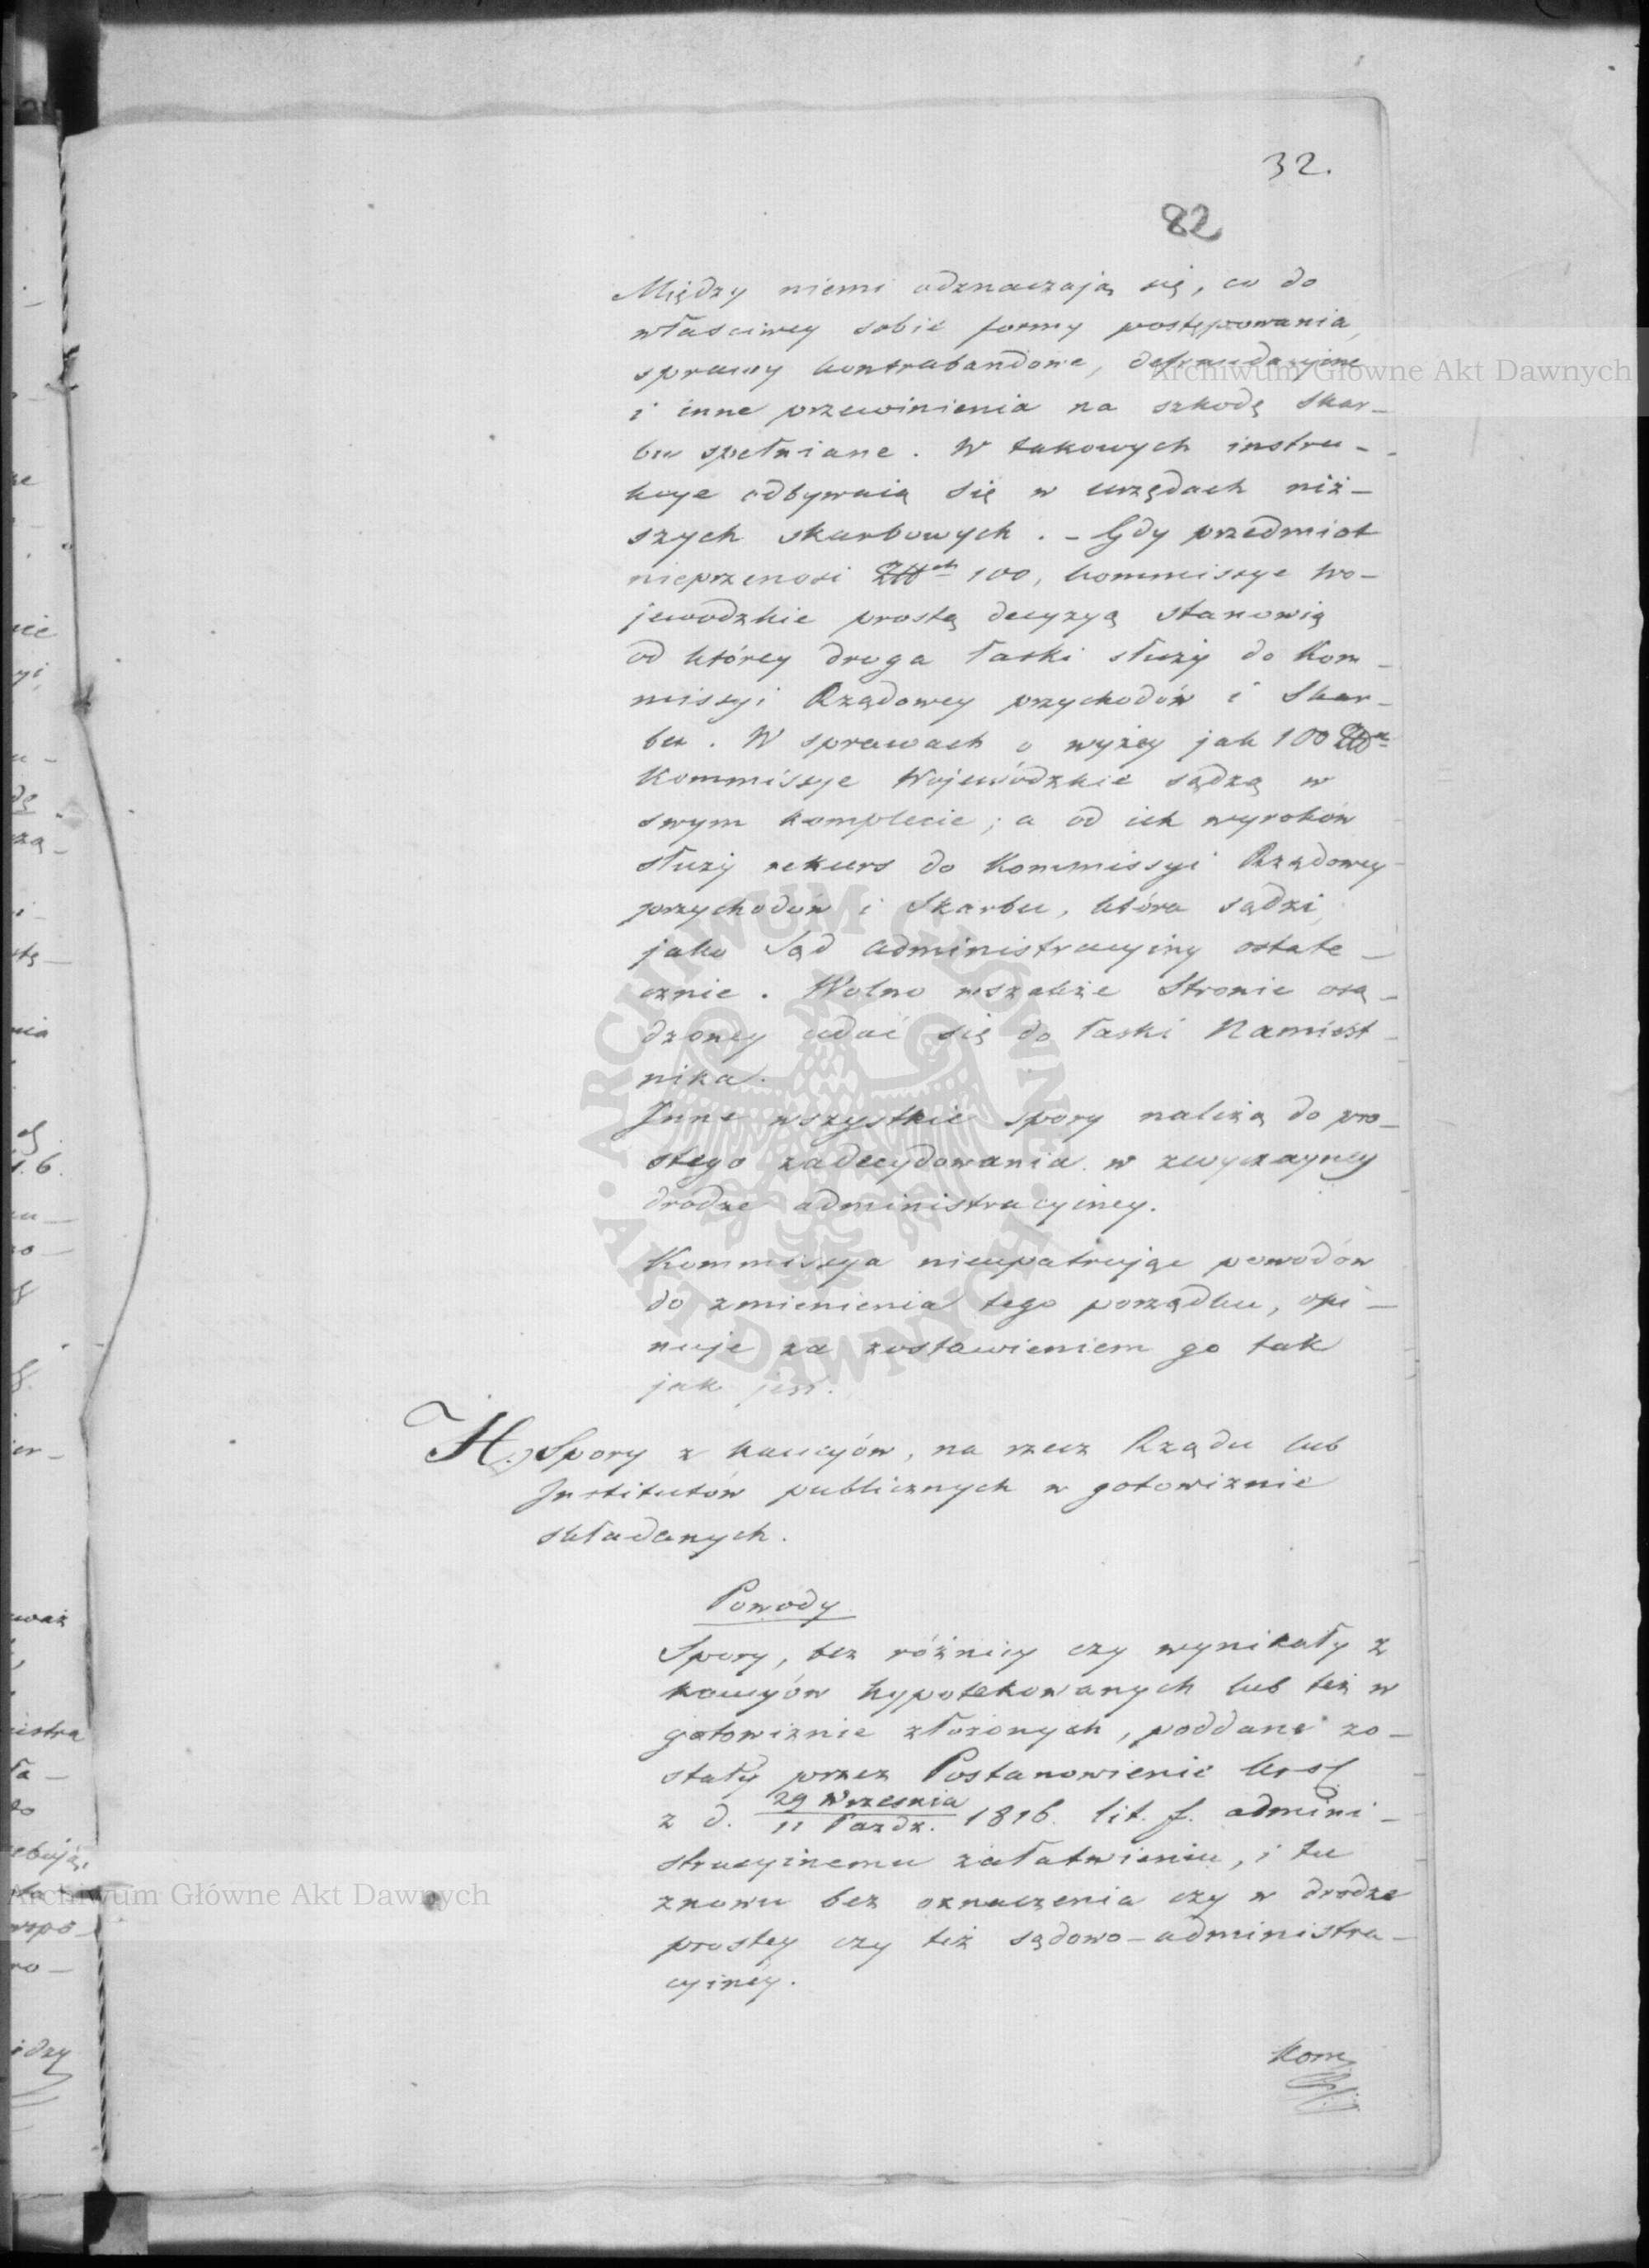 32.
82
Między niemi odznaczają się, co do
właściwey sobie formy postępowania,
sprawy kontrabandowe, defraudacyine
i inne przewinienia na szkodę Skar-
bu spełniane. W takowych instru-
kcye odbywaią się w urzędach niż-
szych skarbowych. - Gdy przedmiot
nieprzenosi 100, kommissye Wo-
jewodzkie prostą decyzyą stanowią
od którey droga łaski służy do Kom-
missyi Rządowey przychodów i Skar-
bu. W sprawach o wyżey jak 100
Kommissye Wojewódzkie sądzą w
swym komplecie; a od ich wyroków
służy rekurs do Kommissyi Rządowey
przychodów i Skarbu, która sądzi,
jako Sąd administracyiny ostate-
cznie. Wolno wszakże Stronie osą-
dzoney udać się do łaski Namiest-
nika.
Inne wszystkie spory należą do pro-
stego zadecydowania w zwyczayney
drodze administracyiney.
Kommissya nieupatrując powodów
do zmienienia tego porządku, opi-
nuje za zostawieniem go tak
jak jest.
H. Spory z kaucyów, na rzecz Rządu lub
Institutów publicznych w gotowiznie
składanych.
Powody
Spory, bez różnicy czy wynikały z
kaucyów hypotekowanych lub też w
gotowiznie złożonych, poddane zo-
stały przez Postanowienie
z d. 29 Wrzesnia / 11 Pazdz. 1816. lit. f. admini-
stracyinemu załatwieniu, i tu
znowu bez oznaczenia czy w drodze
prostey czy też sądowo-administra-
cyiney.
Kom
Archiwum Główne Akt Dawnych
Archiwum Główne Akt Dawnych
ARCHIWUM GŁÓWNE
AKT DAWNYCH